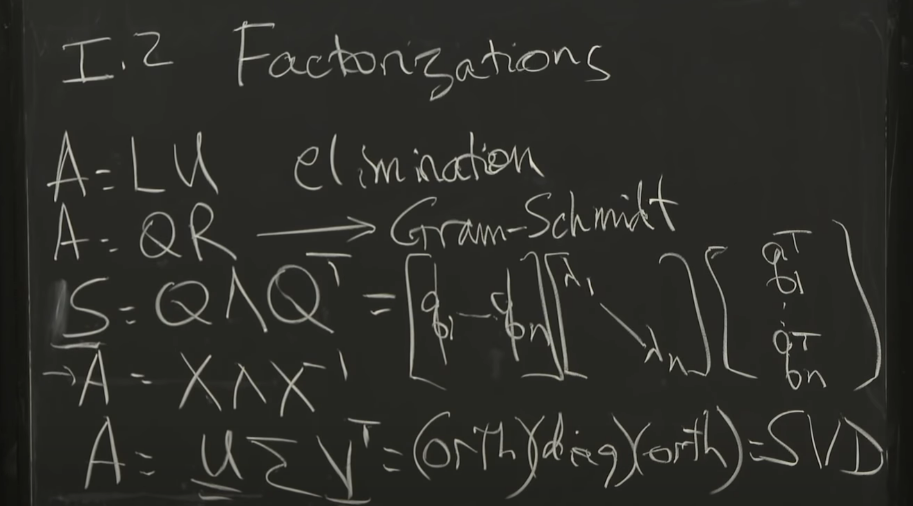 I.2 Factorizations
A = LU elimination
A = QR → Gram-Schmidt
S = QΛQᵀ = [q₁ — qₙ] [λ₁ \ λₙ] [q₁ᵀ ⋮ qₙᵀ]
→ A = XΛX⁻¹
A = UΣVᵀ = (orth)(diag)(orth) = SVD